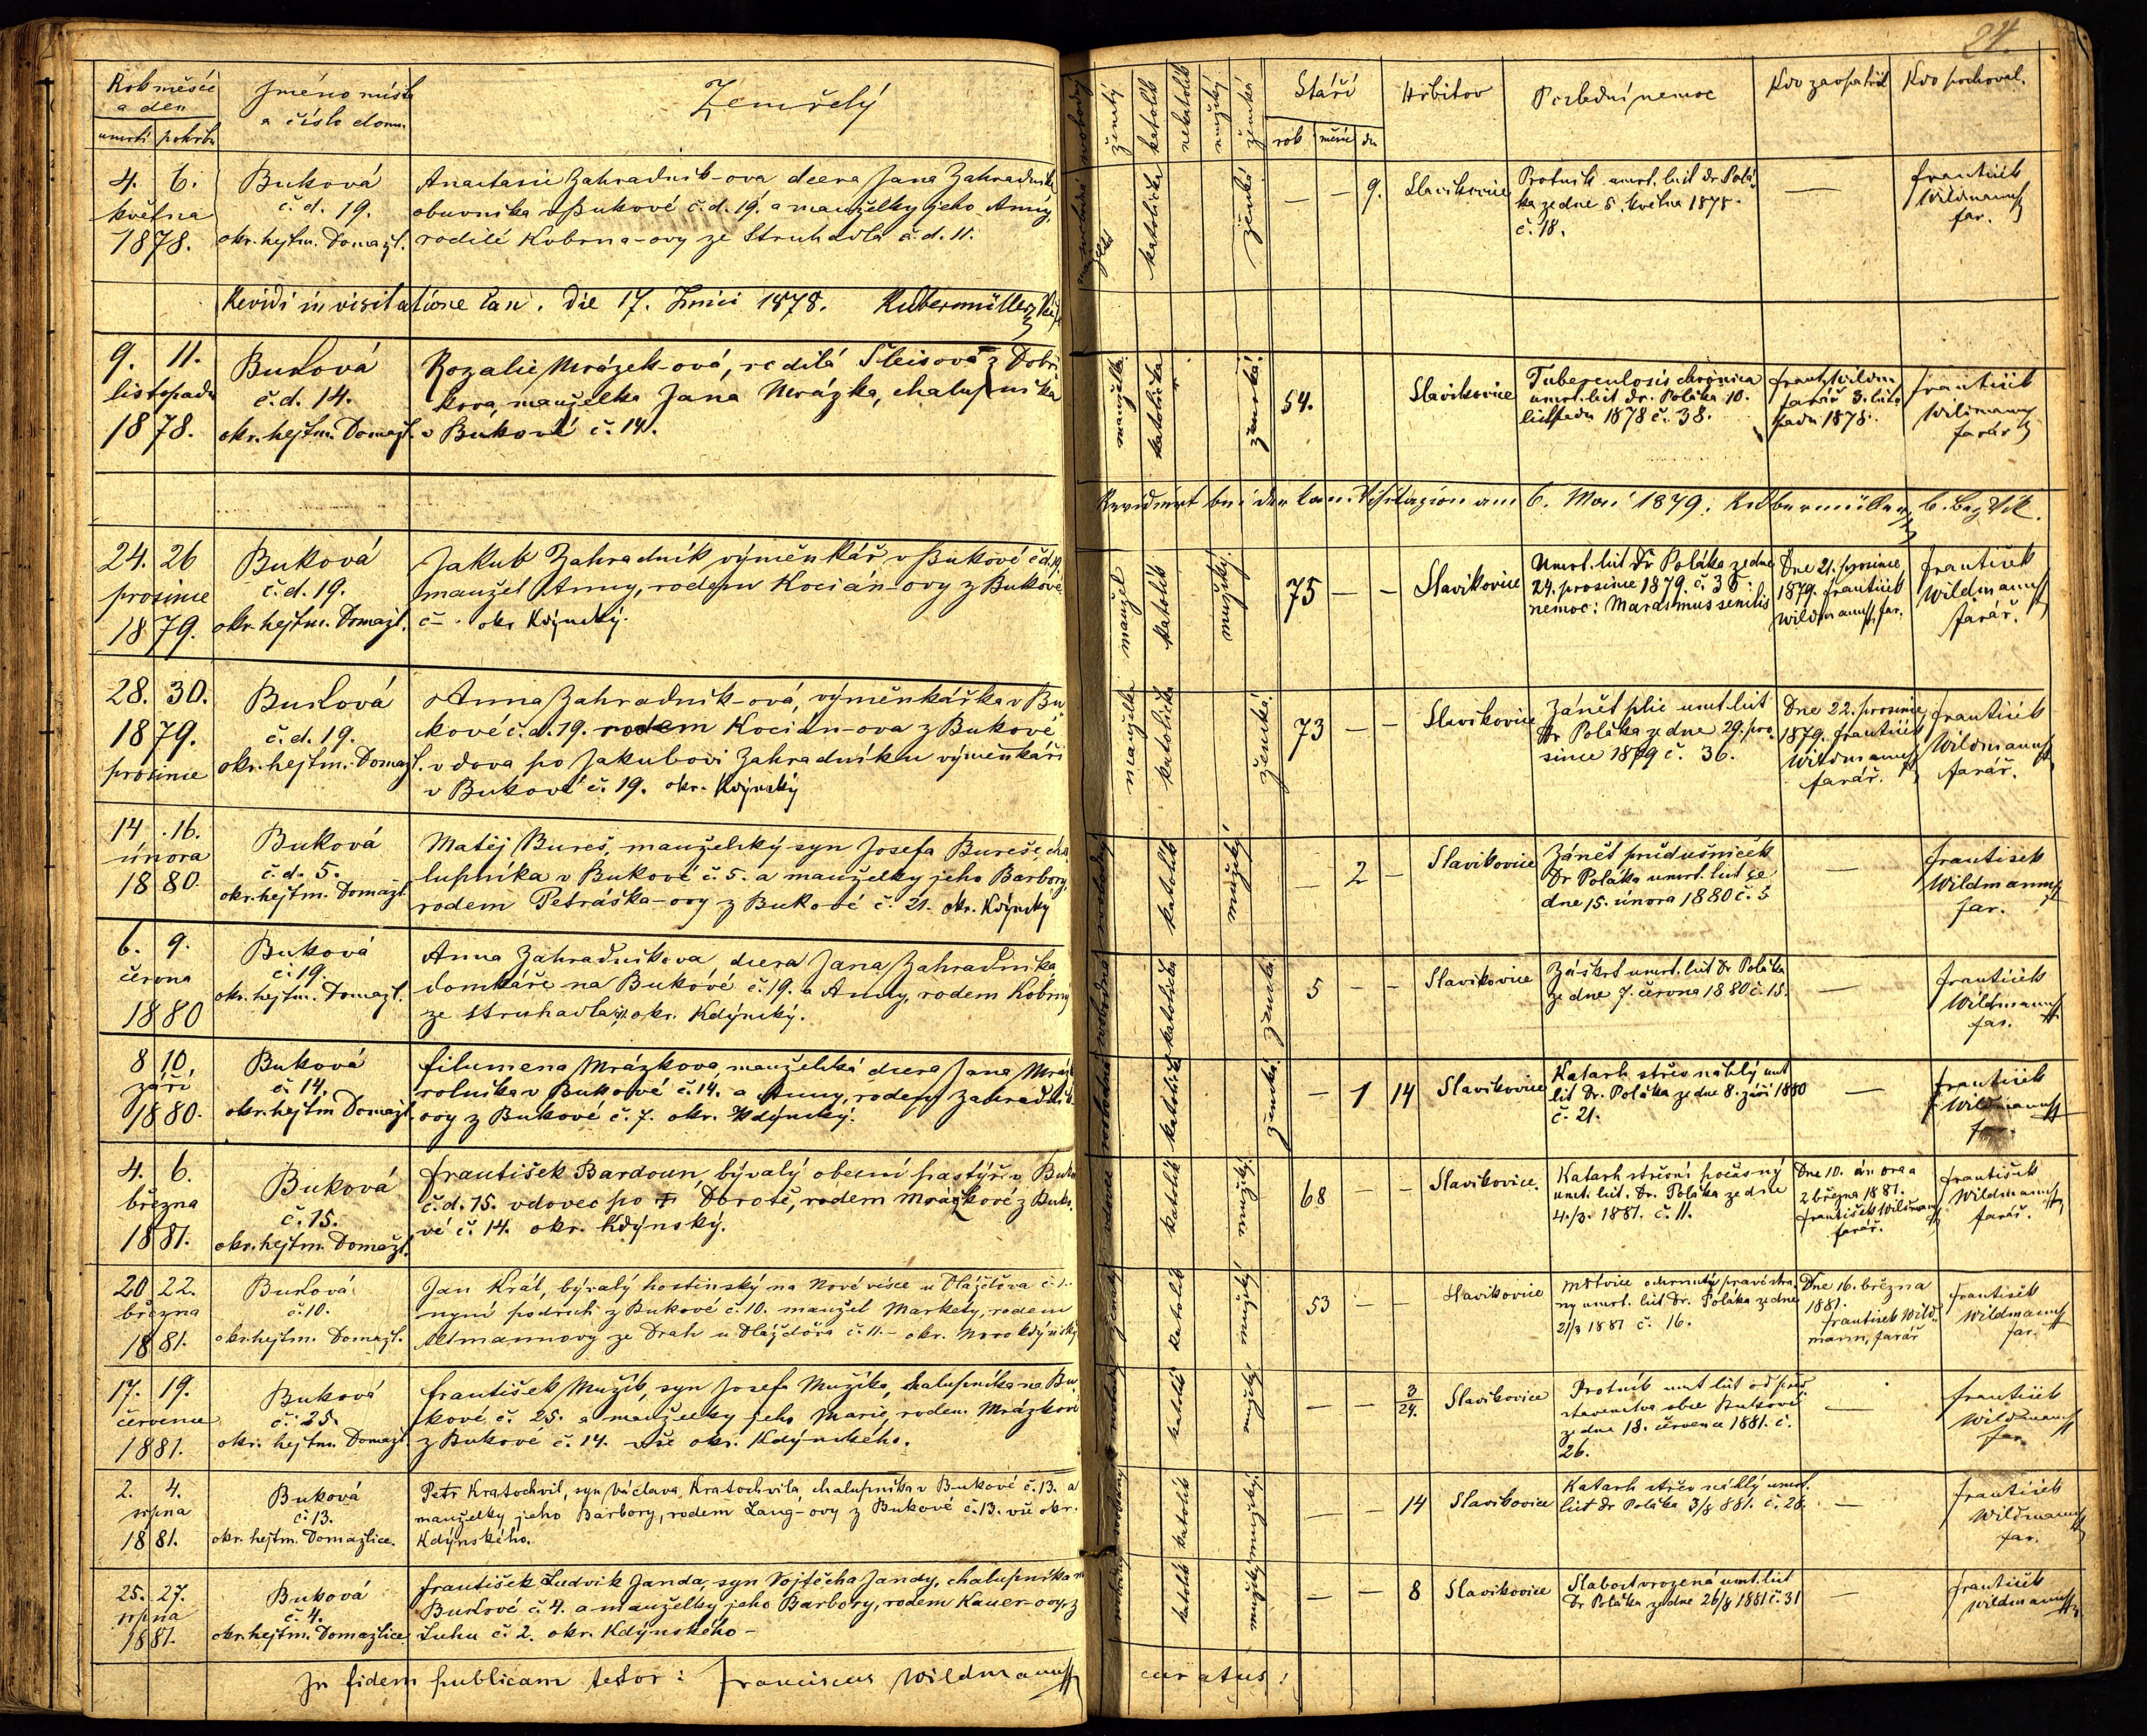 24.
Rok měsíc a den
umrtí pohřbu
Jméno místa a číslo domu.
Zemřelý
ženatý
katolík
nekatolík
mužský
ženské
Stáří
rok měsíc dn
Hřbitov
Poslední nemoc
Kdo zaopatřil
Kdo pochoval.
4. 6.
května
1878.
Buková
č. d. 19.
okr. hejtm. Domažl.
Anastasie Zahradník-ova dcera Jana Zahradníka
obuvníka v Bukové č. d. 19. a manželky jeho Anny,
rodilé Kobrna-ovy ze Struhadla č. d. 11.
katolička
ženská
— — 9.
Slavikovice
Psotník umrt. list Dr Polá-
ka ze dne 5. května 1878.
č. 18.
—
František
Wildmann
far.
Revidi in visitatione can. die 17. Junii 1878.
9. 11.
listopadu
1878.
Buková
č. d. 14.
okr. hejtm. Domažl.
Rozalie Mrázek-ová, rodilá Šleisová z Dobři-
kova, manželka Jana Mrázka, chalupníka
v Bukové č. 14.
manželka
katolička
ženská
54.
Slavikovice
Tuberculosis chronica
umrt. list Dr. Poláka 10.
listopadu 1878 č. 38.
Frant. Wildm.
farář 3. listo-
padu 1878.
František
Wildmann
farář
Revidiert bei der can. Visitazion am 6. Mai 1879.
24. 26
prosince
1879.
Buková
č. d. 19.
okr. hejtm. Domažl.
Jakub Zahradník výměnkář v Bukové č. d. 19.
manžel Anny, rodem Kocián-ovy z Bukové
č – . okr Kdýnský.
manžel
katolík
mužský.
75 — —
Slavikovice
Umrt. list Dr Poláka ze dne
24. prosince 1879. č. 35
nemoc: Marasmus senilis
Dne 21. prosince
1879. František
Wildmann, far.
František
Wildmann
farář.
28. 30.
1879.
prosince
Buková
č. d. 19.
okr. hejtm. Domažl.
Anna Zahradník-ová, výměnkářka v Bu-
kové č. d. 19. rodem Kocian-ova z Bukové
vdova po Jakubovi Zahradníku výměnkáři
v Bukové č. 19. okr. Kdýnský
manželka
katolička
ženská.
73 — —
Slavikovice
Zánět plic umrt. list
Dr Poláka ze dne 29. pro-
since 1879 č. 36.
Dne 22. prosince
1879. František
Wildmann
farář.
František
Wildmann
farář.
14. 16.
února
1880.
Buková
č. d. 5.
okr. hejtm. Domažl.
Matěj Bureš, manželský syn Josefa Bureše, cha-
lupníka v Bukové č. 5. a manželky jeho Barbory,
rodem Petráška-ovy z Bukové č. 21. okr. Kdýnský
svobodný
katolík
mužský
— 2 —
Slavikovice
Zánět průdušniček
Dr Poláka umrt. list ze
dne 15. února 1880 č. 5
—
František
Wildmann
far.
6. 9.
června
1880
Buková
č 19.
okr. hejtm. Domažl.
Anna Zahradníkova, dcera Jana Zahradníka
domkáře na Bukové č. 19. a Anny, rodem Kobrny
ze Struhadla, okr. Kdýnský.
svobodná
katolička
ženská.
5 — —
Slavikovice
Záškrt umrt. list Dr Poláka
ze dne 7. června 1880 č. 15.
—
František
Wildmann
far.
8 10.
září
1880.
Buková
č. 14.
okr. hejtm Domažl.
Filumena Mrázkova, manželská dcera Jana Mráz.
rolníka v Bukové č. 14. a Anny, rodem Zahradník-
ovy z Bukové č. 7. okr. Kdýnský.
katolička
ženská
— 1 14
Slavikovice
Katarh střev náhlý umt
list Dr. Poláka ze dne 8. září 1880
č. 21.
—
František
Wildmann
4. 6.
března
1881.
Buková
č. 15.
okr. hejtm. Domažl.
František Bardoun, bývalý obecní pastýř v Buko
č. d. 15. vdovec po † Dorotě, rodem Mrázkové z Buko-
vé č. 14. okr. Kdýnský.
vdovec
katolík
mužský.
68 — —
Slavikovice.
Katarh střevní počasný
umrt. list. Dr. Poláka ze dne
4./3. 1881. č. 11.
Dne 10. února a
2 března 1881.
František Wildmann
farář.
František
Wildmann
farář.
20 22.
března
1881.
Buková
č. 10.
okr. hejtm. Domažl.
Jan Král, bývalý hostinský na Nové vísce u Dlážďova č. 1.
nyní podruh z Bukové č. 10. manžel Markety, rodem
Altmannovy ze Drah u Dlážďova č. 11. – okr. Novo kdýnský
ženatý
katolík
mužský
53 — —
Slavikovice
Mrtvice ochrnutý pravé stra-
ny umrt. list. Dr. Poláka ze dne
21/3 1881 č. 16.
Dne 16. března
1881.
František Wild-
mann, farář
František
Wildmann
far.
17. 19.
července
1881.
Buková
č. 25.
okr. hejtm. Domažl.
František Mužík, syn Josefa Mužíka, chalupníka na Bu-
kové č. 25. a manželky jeho Marie, rodem Mrázkové
z Bukové č. 14. vše okr. Kdýnského.
katolík
mužský
— — 3/24.
Slavikovice
Psotník umt list od před-
stavenstva obce Bukové
ze dne 18. července 1881. č.
26.
—
František
Wildmann
far.
2. 4.
srpna
1881.
Buková
č. 13.
okr. hejtm. Domažlice.
Petr Kratochvil, syn Václava Kratochvila, chalupníka v Bukové č. 13. a
manželky jeho Barbory, rodem Lang-ovy z Bukové č. 13. vše okr.
Kdýnského.
katolík
mužský
— — 14
Slavikovice
Katarh střev náhlý umrt.
list Dr Poláka 3/8 881. č. 28.
—
František
Wildmann
far.
25. 27.
srpna
1881.
Buková
č. 4.
okr. hejtm. Domažlice
František Ludvik Janda, syn Vojtěcha Jandy, chalupníka na
Bukové č. 4. a manželky jeho Barbory, rodem Kauer-ovy, z
Luhu č. 2. okr. Kdýnského –
svobodný
katolík
mužský
— — 8
Slavikovice
Slabost vrozená umt. list
Dr Poláka ze dne 26/8 1881 č. 31
—
František
Wildmann
In fidem publicam testor: Franciscus Wildmann
curatus!